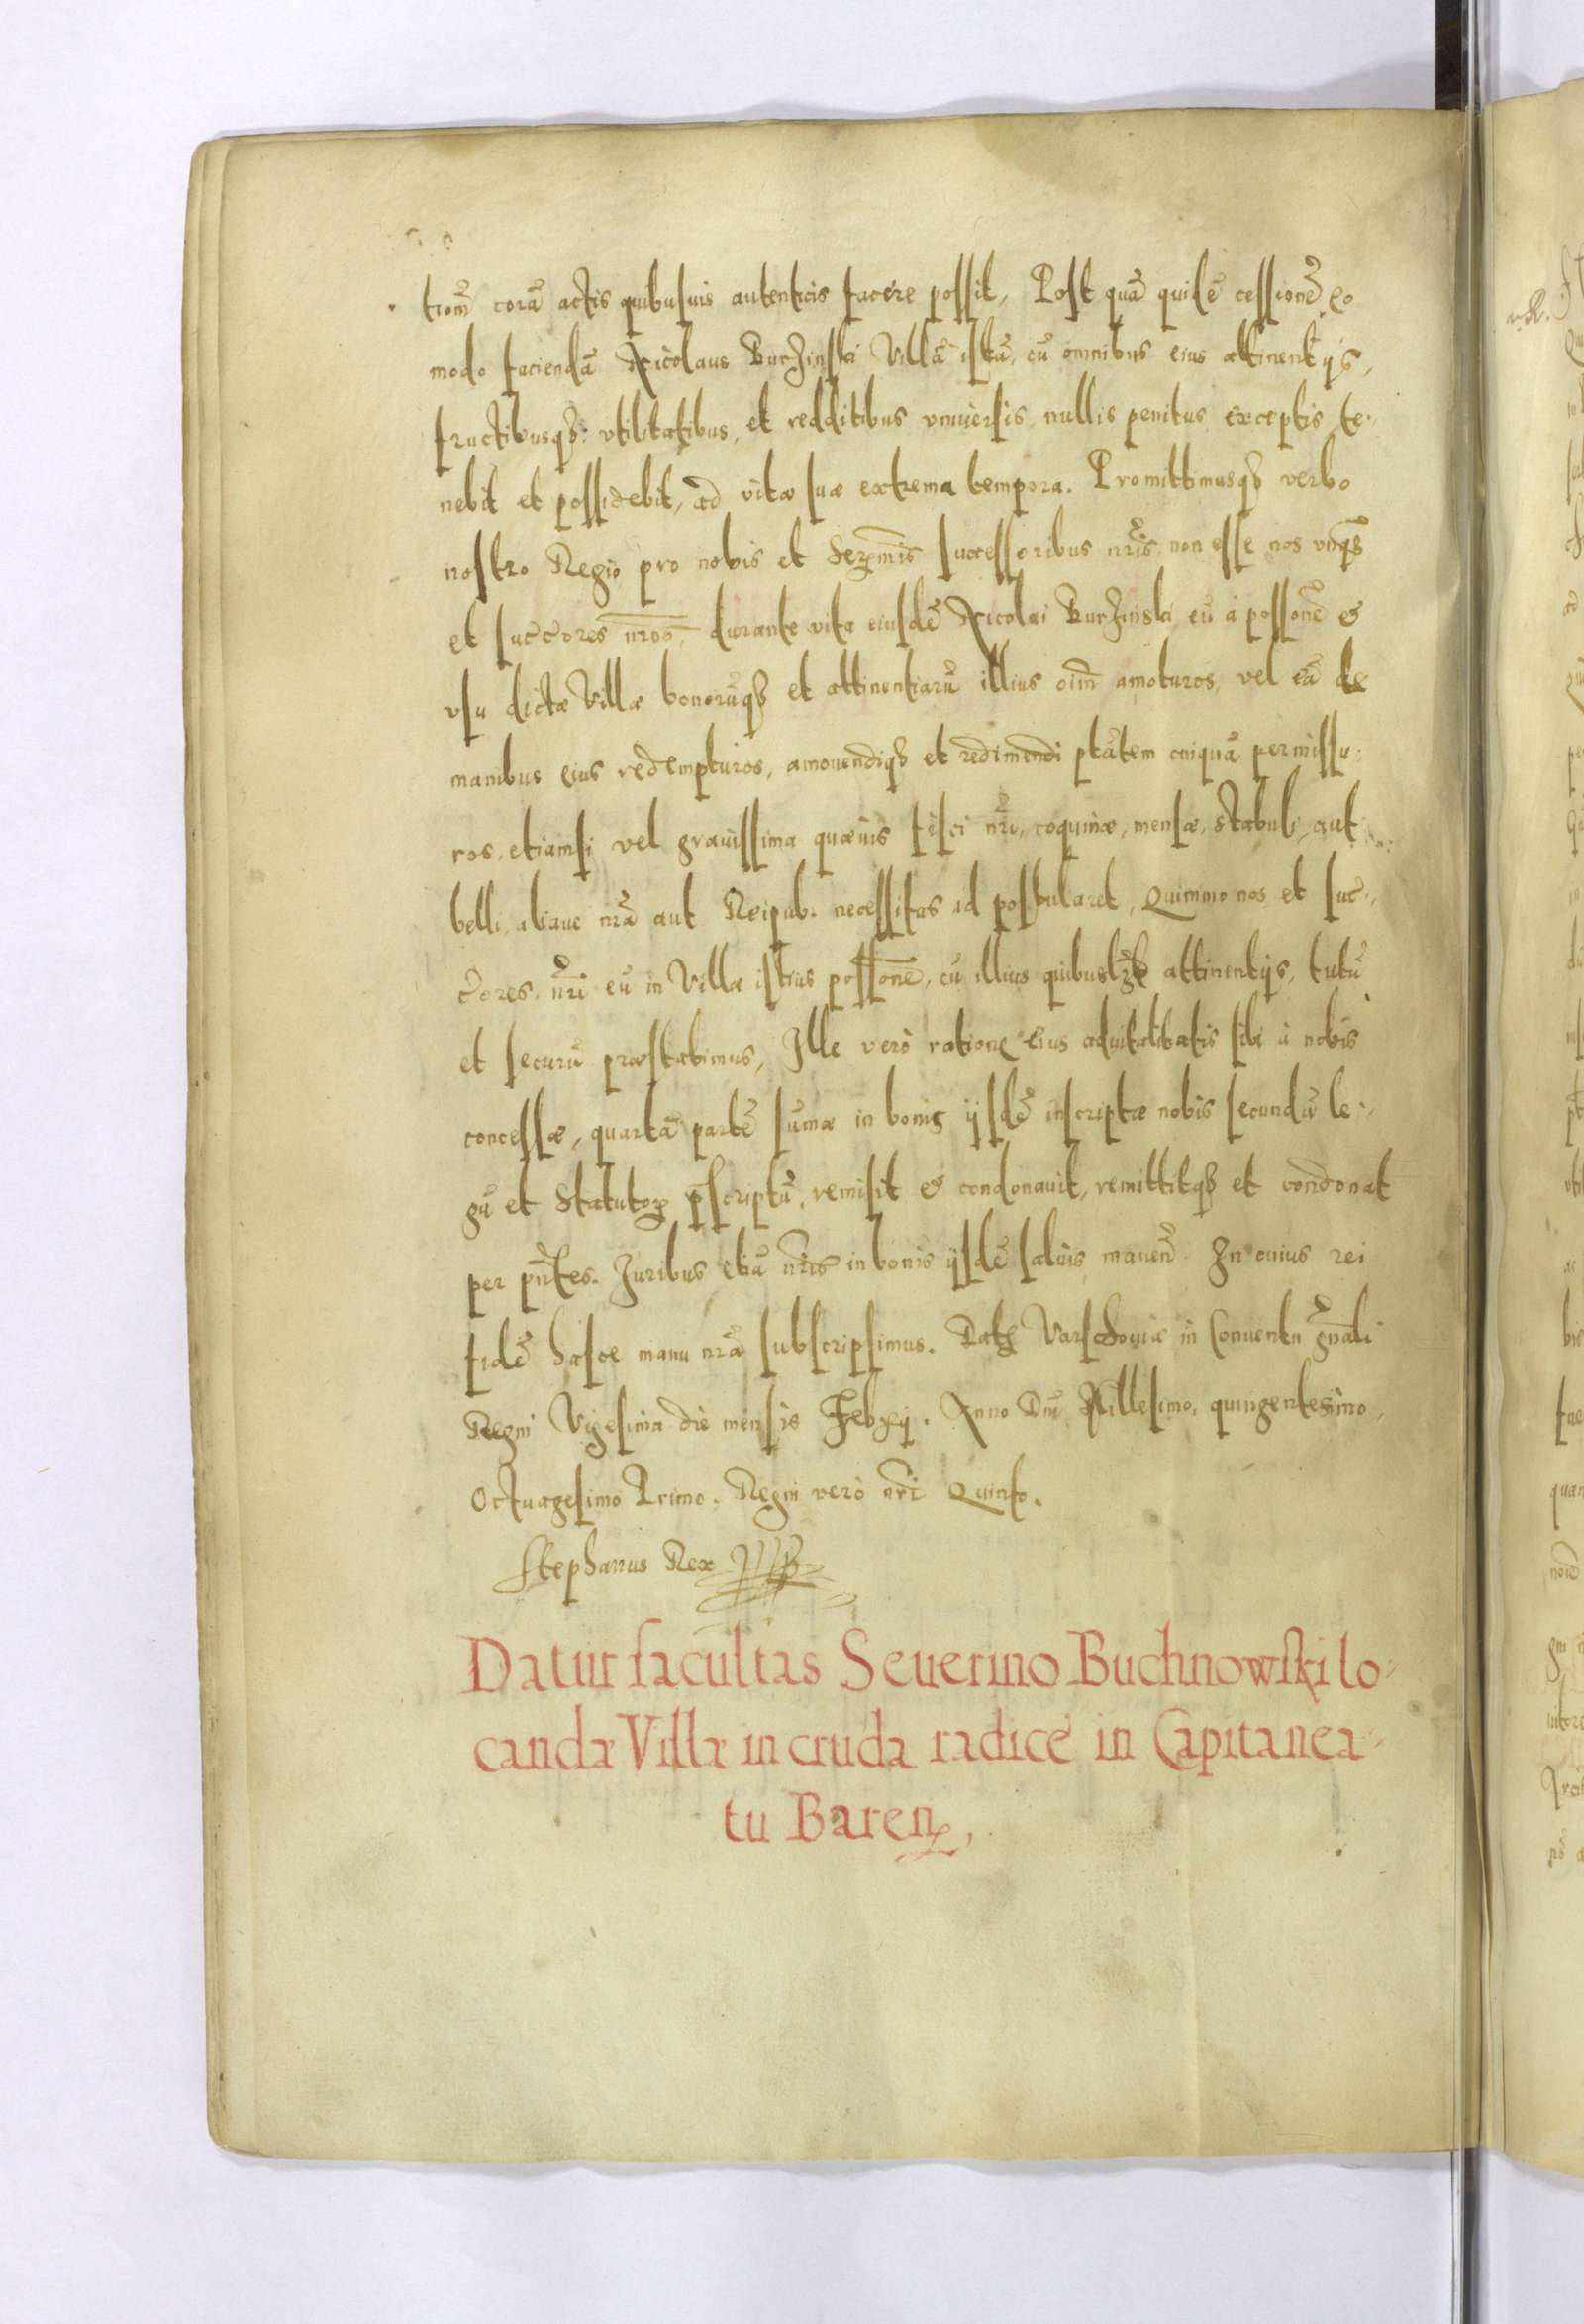 tionē corā actis quibusuis autenticis facere possit, Post quā quidē cessionē eo
modo faciendā Nicolaus Burzinski Villā istā, cū omnibus eius attinentijs,
fructibusq₃ vtilitatibus, et redditibus vniuersis nullis penitus exceptis te-
nebit et possidebit, ad vitæ suæ extrema tempora. Promittimusq₃ verbo
nostro Regio pro nobis et Serᵐis successoribus nr̃is non esse nos vnq̃
et succōres nr̃os, durante vita eiusdē Nicolai Burzinski eū à possōne et
vsu dictæ Villæ bonorūq₃ et attinentiarū illius oīm amoturos, vel eā de
manibus eius redempturos, amouendiq₃ et redimendi ptātem cuiquā permissu-
ros, etiamsi vel grauissima quæuis fisci nr̃i, coquinæ, mensæ, stabuli, aut
belli, aliaue nr̃a aut Reipub. necessitas id postularet, Quinimo nos et suc-
cōres nr̃i eū in Villæ istius possōne, cū illius quibuslꝫ attinentijs, tutū
et securū præstabimus, Ille verò ratione eius aduitalitatis sibi à nobis
concessæ, quartā partē sumæ in bonis ijsdē inscriptæ nobis secundū le-
gū et Statutoꝝ p̄scriptū, remisit et condonauit, remittitq₃ et condonat
per pñtes. Iuribus etiā nr̃is in bonis ijsdē saluis manen̄. In cuius rei
fidē hasce manu nr̃a subscripsimus. Datꝫ Varschouiæ in Conuentu gñali
Regni Vigesima die mensis Febrꝫ. Anno Dñi Millesimo, quingentesimo,
Octuagesimo Primo. Regni verò nr̃i Quinto.
Stephanus Rex
Datur facultas Seuerino Buchnowski lo-
candæ Villæ in cruda radice in Capitanea-
tu Baren̄,